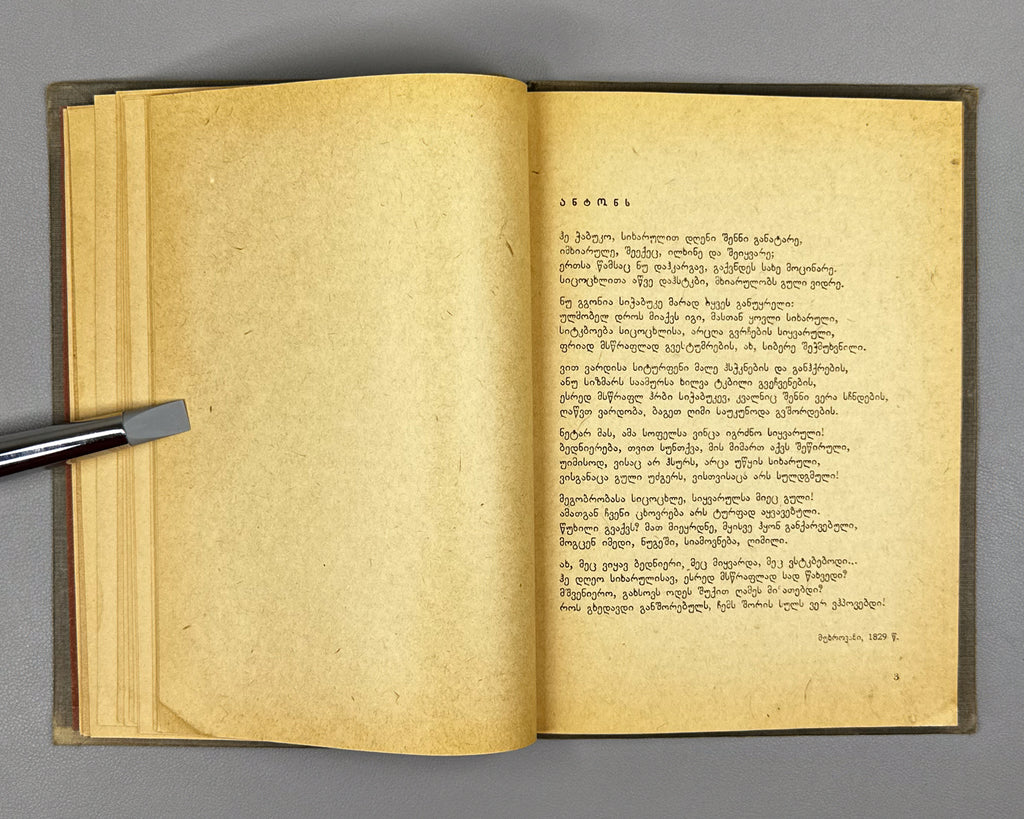 ანტონს
ჰე ჭაბუკო, სიხარულით დღენი შენნი განატარე,
იმხიარულე, შეექეც, ილხინე და შეიყვარე;
ერთსა წამსაც ნუ დაჰკარგავ, გაქვნდეს სახე მოცინარე.
სიცოცხლითა აწვე დაჰსტკბი, მხიარულობს გული ვიდრე.
ნუ გგონია სიჭაბუკე მარად გყვეს განუყრელი:
ულმობელ დროს მიაქვს იგი, მასთან ყოვლი სიხარული,
სიტკბოება სიცოცხლისა, არცღა გვრჩების სიყვარული,
ფრიად მსწრაფლად გვესტუმრების, ახ, სიბერე შეჭმუხვნილი.
ვით ვარდისა სიტურფენი მალე ჰსჭკნების და განჰქრების,
ანუ სიზმარს საამურსა ხილვა ტკბილი გვეჩვენების,
ესრედ მსწრაფლ ჰრბი სიჭაბუკევ, კვალნიც შენნი ვერა სჩნდების,
ღაწვთ ვარდობა, ბაგეთ ღიმი საუკუნოდა გვშორდების.
ნეტარ მას, ამა სოფელსა ვინცა იგრძნო სიყვარული!
ბედნიერება, თვით სუნთქვა, მის მიმართ აქვს შეწირული,
უიმისოდ, ვისაც არ ჰსურს, არცა უწყის სიხარული,
ვისგანაცა გული უძგერს, ვისთვისაცა არს სულდგმული!
მეგობრობასა სიცოცხლე, სიყვარულსა მიეც გული!
ამათგან ჩვენი ცხოვრება არს ტურფად აყვავებული.
წუხილი გვაქვს? მათ მიეყრდნე, მყისვე ჰყონ განქარვებული,
მოგცენ იმედი, ნუგეში, სიამოვნება, ღიმილი.
ახ, მეც ვიყავ ბედნიერი, მეც მიყვარდა, მეც ვსტკბებოდი...
ჰე დღეო სიხარულისავ, ესრედ მსწრაფლად სად წახვედი?
მშვენიერო, გახსოვს ოდეს შუქით ღამეს
როს გხედავდი განშორებულს, ჩემს შორის სულს ვერ ვჰპოვებდი!
მუხროვანი, 1829 წ.
3